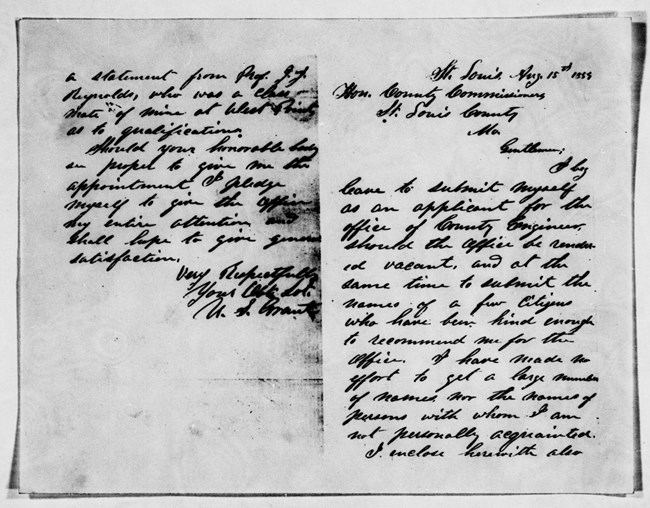 St. Louis, Aug. 15th 1859
Hon. County Commissioners
St. Louis County
Mo.
Gentlemen;
I beg
leave to submit myself
as an applicant for the
office of County Engineer,
should the office be render-
ed vacant, and at the
same time to submit the
names of a few Citizens
who have been kind enough
to recommend me for the
office. I have made no
effort to get a large number
of names, nor the names of
persons with whom I am
not personally acquainted.
I enclose herewith also
a statement from Prof. J. J.
Reynolds, who was a class
mate of mine at West Point,
as to qualifications.
Should your honorable body
see proper to give me the
appointment I pledge
myself to give the office
my entire attention and
shall hope to give general
satisfaction.
Very Respectfully
Your Obt. Svt.
U. S. Grant